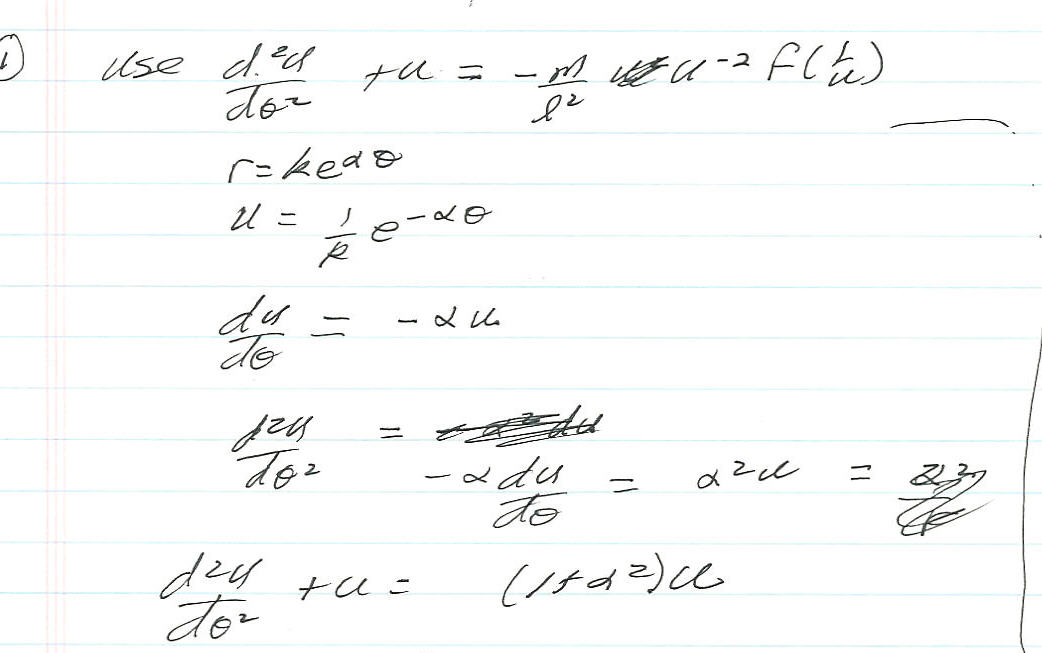 ① use d²u/dθ² + u = -m/l² u⁻² F(1/u)
r = ke^αθ
u = 1/k e^-αθ
du/dθ = -αu
d²u/dθ² = -α du/dθ = α²u =
d²u/dθ² + u = (1+α²)u